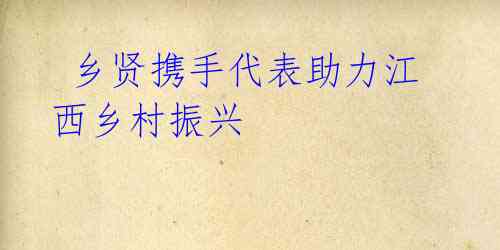 乡贤携手代表助力江
西乡村振兴